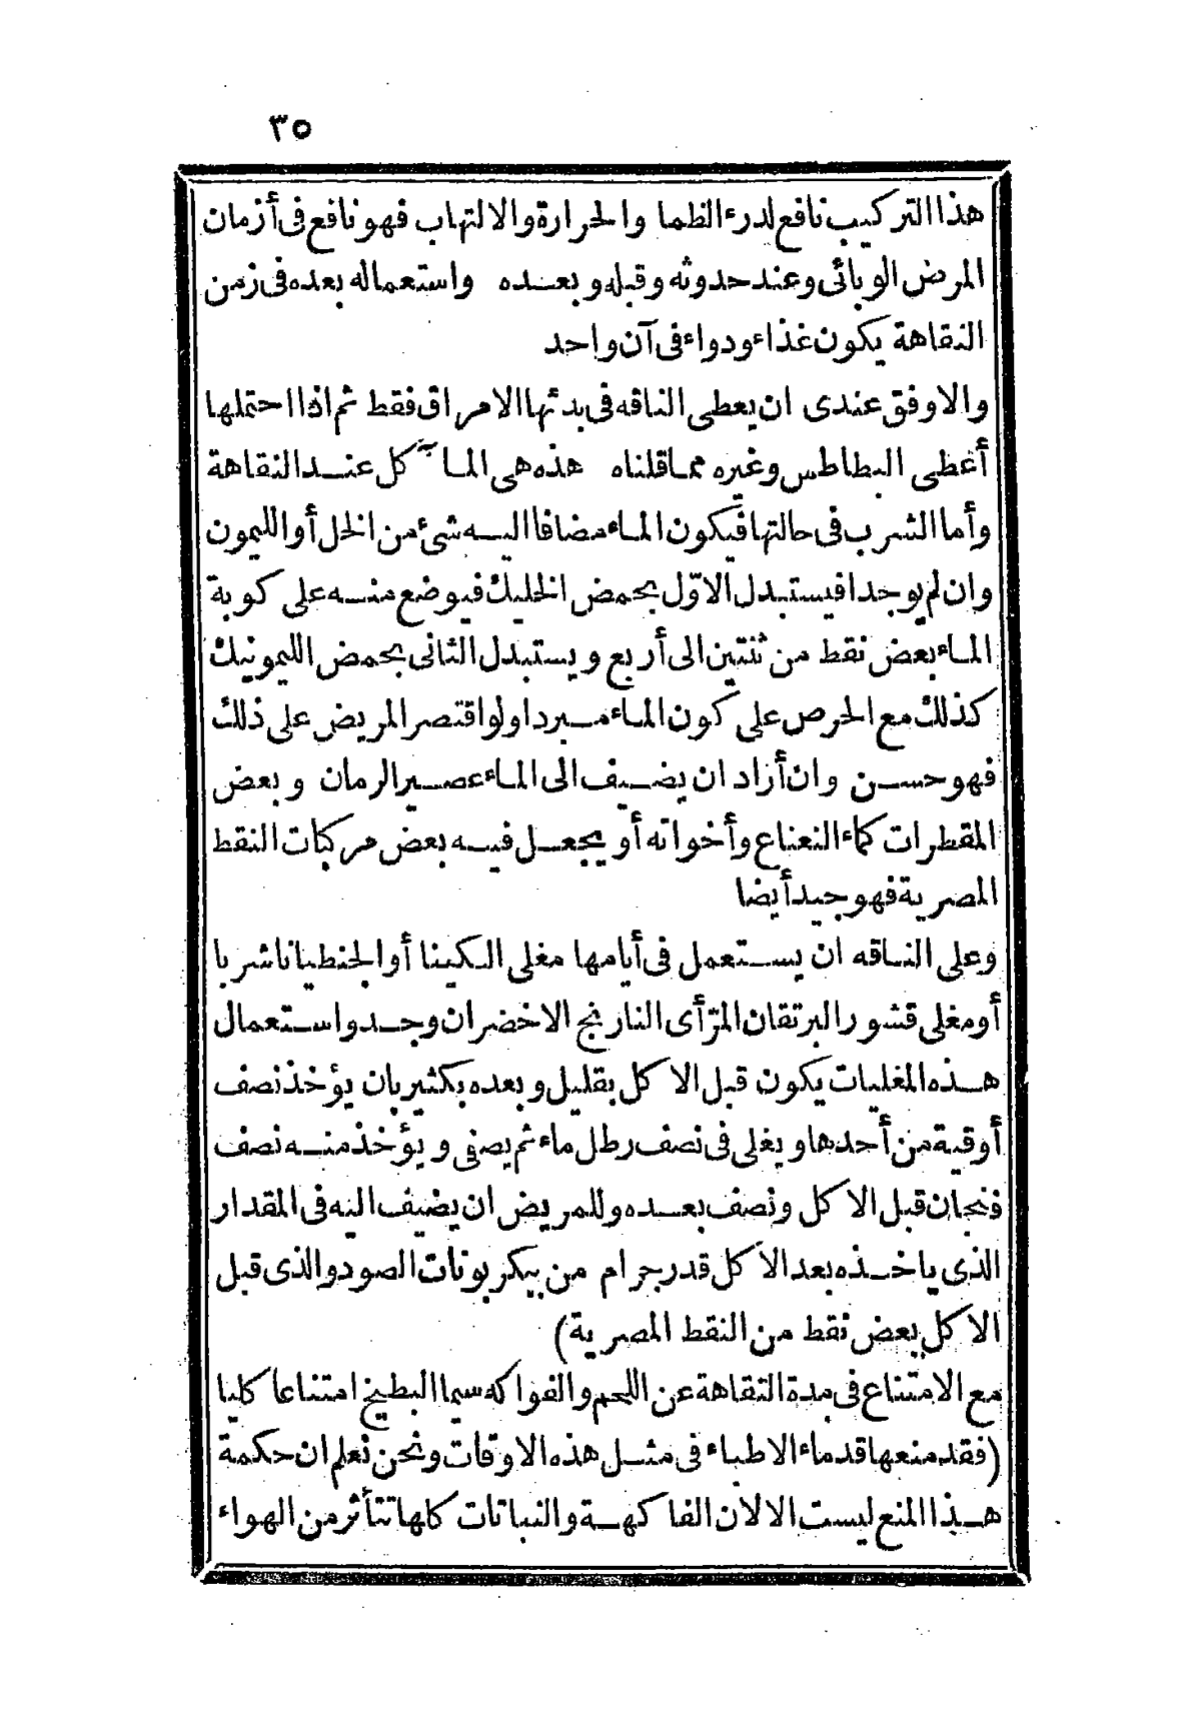 ٣٥
هذا التركيب نافع لدرء الظما والحرارة والالتهاب فهو نافع فى أزمان
المرض الوبائى وعند حدوثه وقبله وبعده واستعماله بعده فى زمن
النقاهة يكون غذاء ودواء فى آن واحد
والاوفق عندى ان يعطى الناقه فى بدئها الامراق فقط ثم اذا احتملها
أعطى البطاطس وغيره مما قلناه هذه هى المآكل عند النقاهة
وأما الشرب فى حالتها فيكون الماء مضافا اليه شئ من الخل أو الليمون
وان لم يوجدا فيستبدل الاوّل بحمض الخليك فيوضع منه على كوبة
الماء بعض نقط من ثنتين الى أربع ويستبدل الثانى بحمض الليمونيك
كذلك مع الحرص على كون الماء مبردا ولو اقتصر المريض على ذلك
فهو حسن وان أراد ان يضيف الى الماء عصير الرمان وبعض
المقطرات كماء النعناع وأخواته أو يجعل فيه بعض مركبات النقط
المصرية فهو جيد أيضا
وعلى الناقه ان يستعمل فى أيامها مغلى الكينا أو الجنطيانا شربا
أو مغلى قشور البرتقان المرّ أى النارنج الاخضر ان وجد واستعمال
هذه المغليات يكون قبل الاكل بقليل وبعده بكثير بان يؤخذ نصف
أوقية من أحدها ويغلى فى نصف رطل ماء ثم يصفى ويؤخذ منه نصف
فنجان قبل الاكل ونصف بعده وللمريض ان يضيف اليه فى المقدار
الذى ياخذه بعد الاكل قدر جرام من بيكربونات الصود والذى قبل
الاكل بعض نقط من النقط المصرية)
مع الامتناع فى مدة النقاهة عن اللحم والفواكه سيما البطيخ امتناعا كليا
(فقد منعها قدماء الاطباء فى مثل هذه الاوقات ونحن نعلم ان حكمة
هذا المنع ليست الا لان الفاكهة والنباتات كلها تتأثر من الهواء